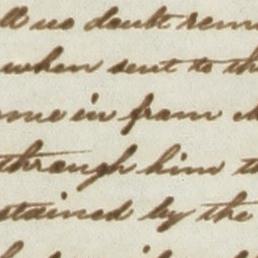 ll no doubt rem
when sent to th
me in from
through him t
stained by the